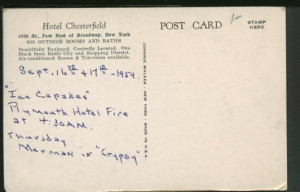 Hotel Chesterfield
49th St., Just East of Broadway, New York
600 OUTSIDE ROOMS AND BATHS
Beautifully Equipped. Centrally Located. One
Block from Radio City and Shopping District.
Air-conditioned Rooms & Television available.
POST CARD
STAMP
HERE
JOHNNIE WALKER NEW YORK
MADE IN U.S.A.
Sept. 16th & 17th - 1959.
"Ice Capades"
Plymouth Hotel Fire
at 4:30AM.
Thursday
Merman in "Gypsy"